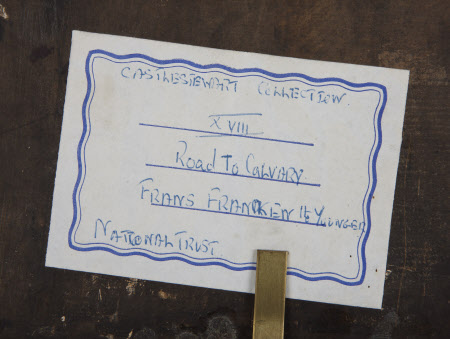 CASTLESTEWART COLLECTION.
XVIII
ROAD TO CALVARY
FRANS FRANCKEN THE YOUNGER
NATIONAL TRUST